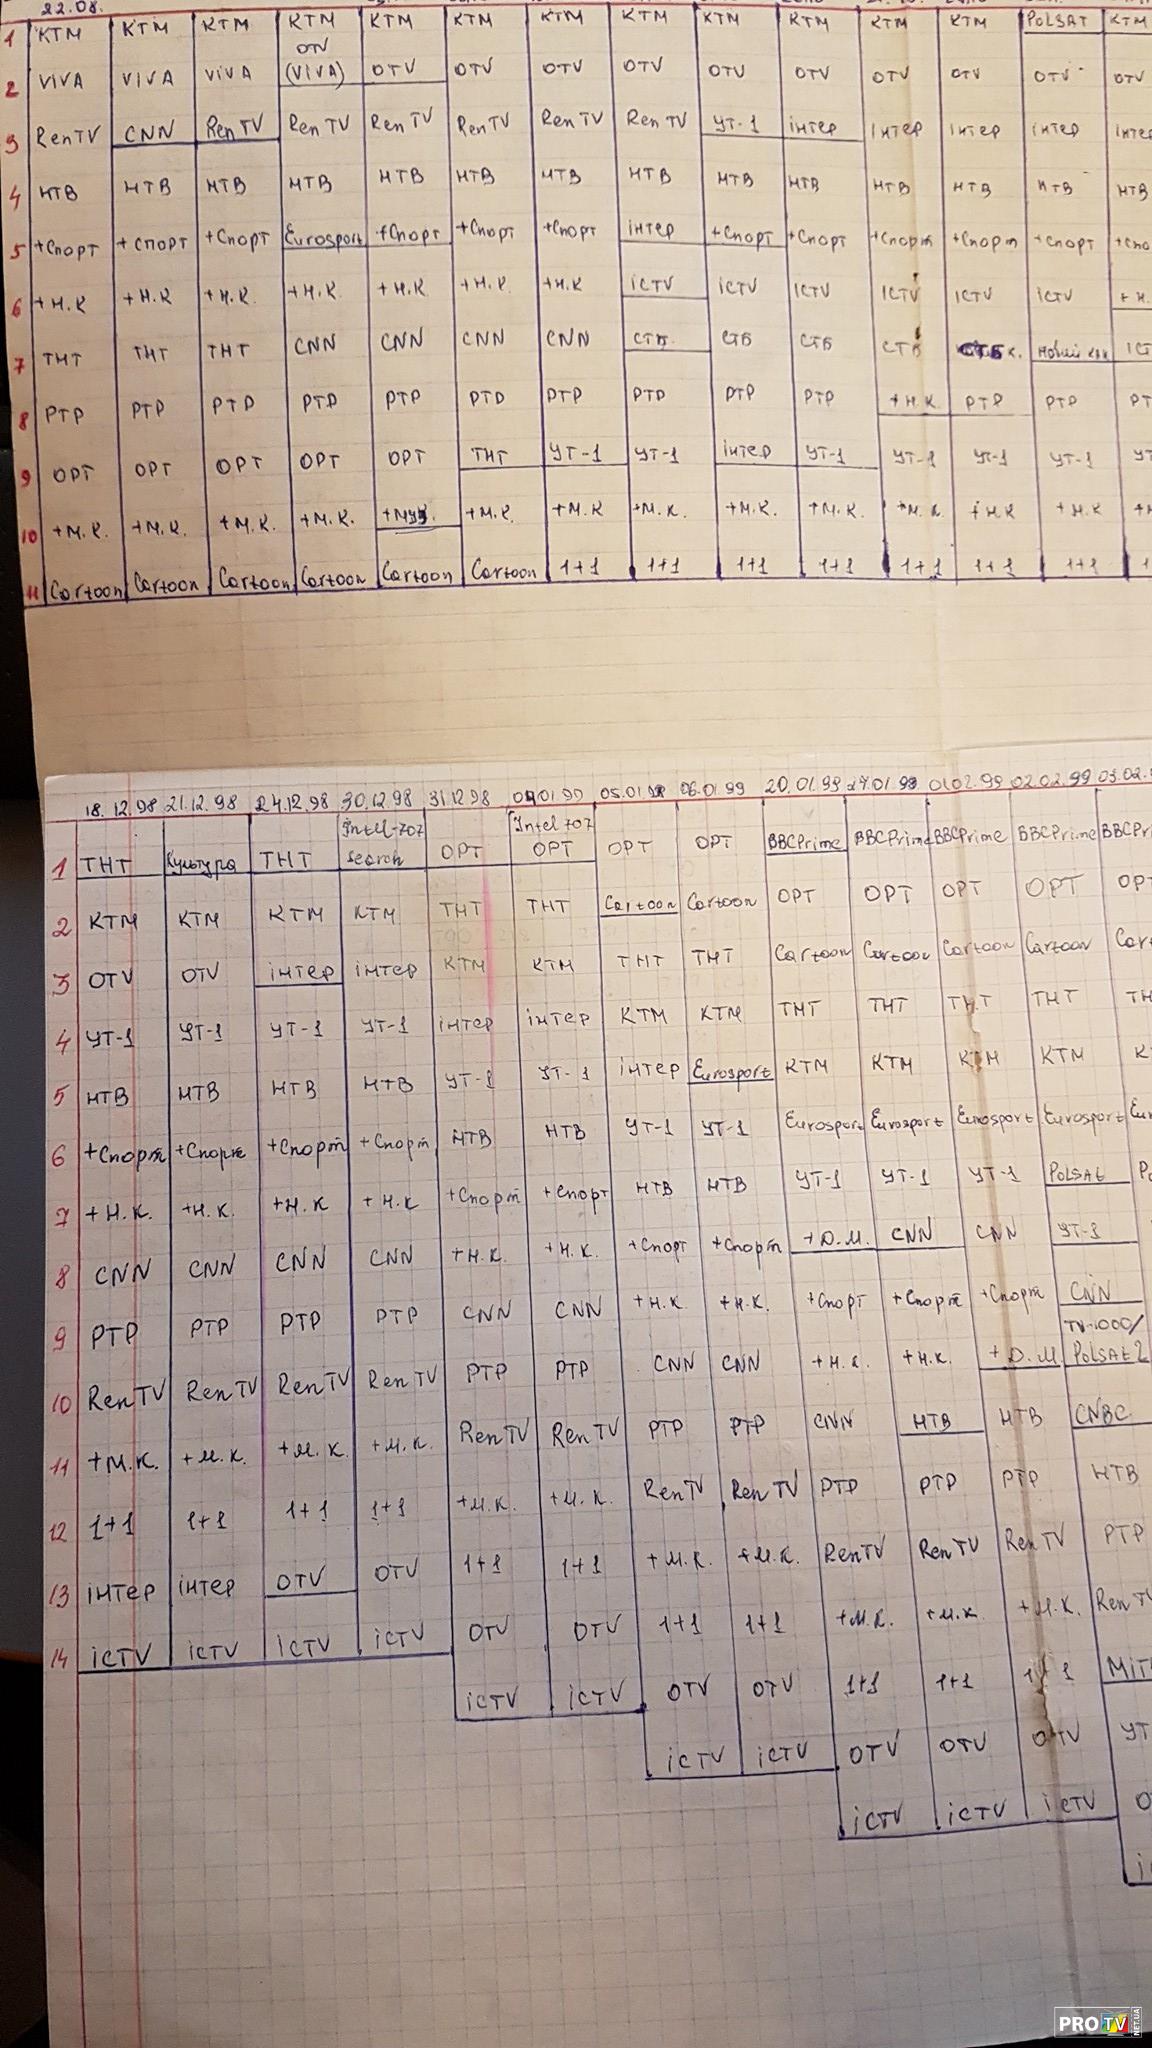 22.08.
1 КТМ КТМ КТМ КТМ КТМ КТМ КТМ КТМ КТМ КТМ КТМ КТМ POLSAT КТМ
2 VIVA VIVA VIVA OTV (VIVA) OTV OTV OTV OTV OTV OTV OTV OTV OTV OTV
3 RenTV CNN RenTV RenTV RenTV RenTV RenTV RenTV УТ-1 інтер інтер інтер інтер інтер
4 НТВ НТВ НТВ НТВ НТВ НТВ НТВ НТВ НТВ НТВ НТВ НТВ НТВ НТВ
5 +Спорт +Спорт +Спорт Eurosport +Спорт +Спорт +Спорт інтер +Спорт +Спорт +Спорт +Спорт +Спорт +Спо
6 +Н.К +Н.К +Н.К. +Н.К. +Н.К +Н.К +Н.К ICTV ICTV ICTV ICTV ICTV ICTV +Н.
7 ТНТ ТНТ ТНТ CNN CNN CNN CNN СТБ СТБ СТБ СТБ СТБ Новий кан ICT
8 РТР РТР РТР РТР РТР РТР РТР РТР РТР РТР +Н.К. РТР РТР РТ
9 ОРТ ОРТ ОРТ ОРТ ОРТ ТНТ УТ-1 УТ-1 інтер УТ-1 УТ-1 УТ-1 УТ-1 УТ
10 +М.К. +М.К. +М.К. +М.К. +Муз. +М.К. +М.К +М.К. +М.К. +М.К. +М.К +М.К +М.К
11 Cartoon Cartoon Cartoon Cartoon Cartoon Cartoon 1+1 1+1 1+1 1+1 1+1 1+1 1+1
18.12.98 21.12.98 24.12.98 30.12.98 31.12.98 04.01.99 05.01.99 06.01.99 20.01.99 27.01.99 01.02.99 02.02.99 03.02.
Intel-707 Intel 707
1 ТНТ Культура ТНТ search ОРТ ОРТ ОРТ ОРТ BBCPrime BBCPrime BBCPrime BBCPrime BBCPr
2 КТМ КТМ КТМ КТМ ТНТ ТНТ Cartoon Cartoon ОРТ ОРТ ОРТ ОРТ ОР
3 OTV OTV інтер інтер КТМ КТМ ТНТ ТНТ Cartoon Cartoon Cartoon Cartoon Cart
4 УТ-1 УТ-1 УТ-1 УТ-1 інтер інтер КТМ КТМ ТНТ ТНТ ТНТ ТНТ ТН
5 НТВ НТВ НТВ НТВ УТ-1 УТ-1 інтер Eurosport КТМ КТМ КТМ КТМ К
6 +Спорт +Спорт +Спорт +Спорт НТВ НТВ УТ-1 УТ-1 Eurosport Eurosport Eurosport Eurosport Eur
7 +Н.К. +Н.К. +Н.К +Н.К +Спорт +Спорт НТВ НТВ УТ-1 УТ-1 УТ-1 POLSAT Po
8 CNN CNN CNN CNN +Н.К. +Н.К. +Спорт +Спорт +D.M. CNN CNN УТ-1
9 РТР РТР РТР РТР CNN CNN +Н.К +Н.К. +Спорт +Спорт +Спорт CNN
TV-1000/
10 RenTV RenTV RenTV RenTV РТР РТР CNN CNN +Н.К. +Н.К. +D.M POLSAT 2
11 +М.К. +М.К. +М.К. +М.К. RenTV RenTV РТР РТР CNN НТВ НТВ CNBC
12 1+1 1+1 1+1 1+1 +М.К. +М.К. RenTV RenTV РТР РТР РТР НТВ
13 інтер інтер OTV OTV 1+1 1+1 +М.К. +М.К. RenTV RenTV RenTV РТР
14 ICTV ICTV ICTV ICTV OTV OTV 1+1 1+1 +М.К. +М.К. +М.К. RenTV
ICTV ICTV OTV OTV 1+1 1+1 1+1
ICTV ICTV OTV OTV OTV УТ
ICTV ICTV ICTV О
PRO TV NET.UA